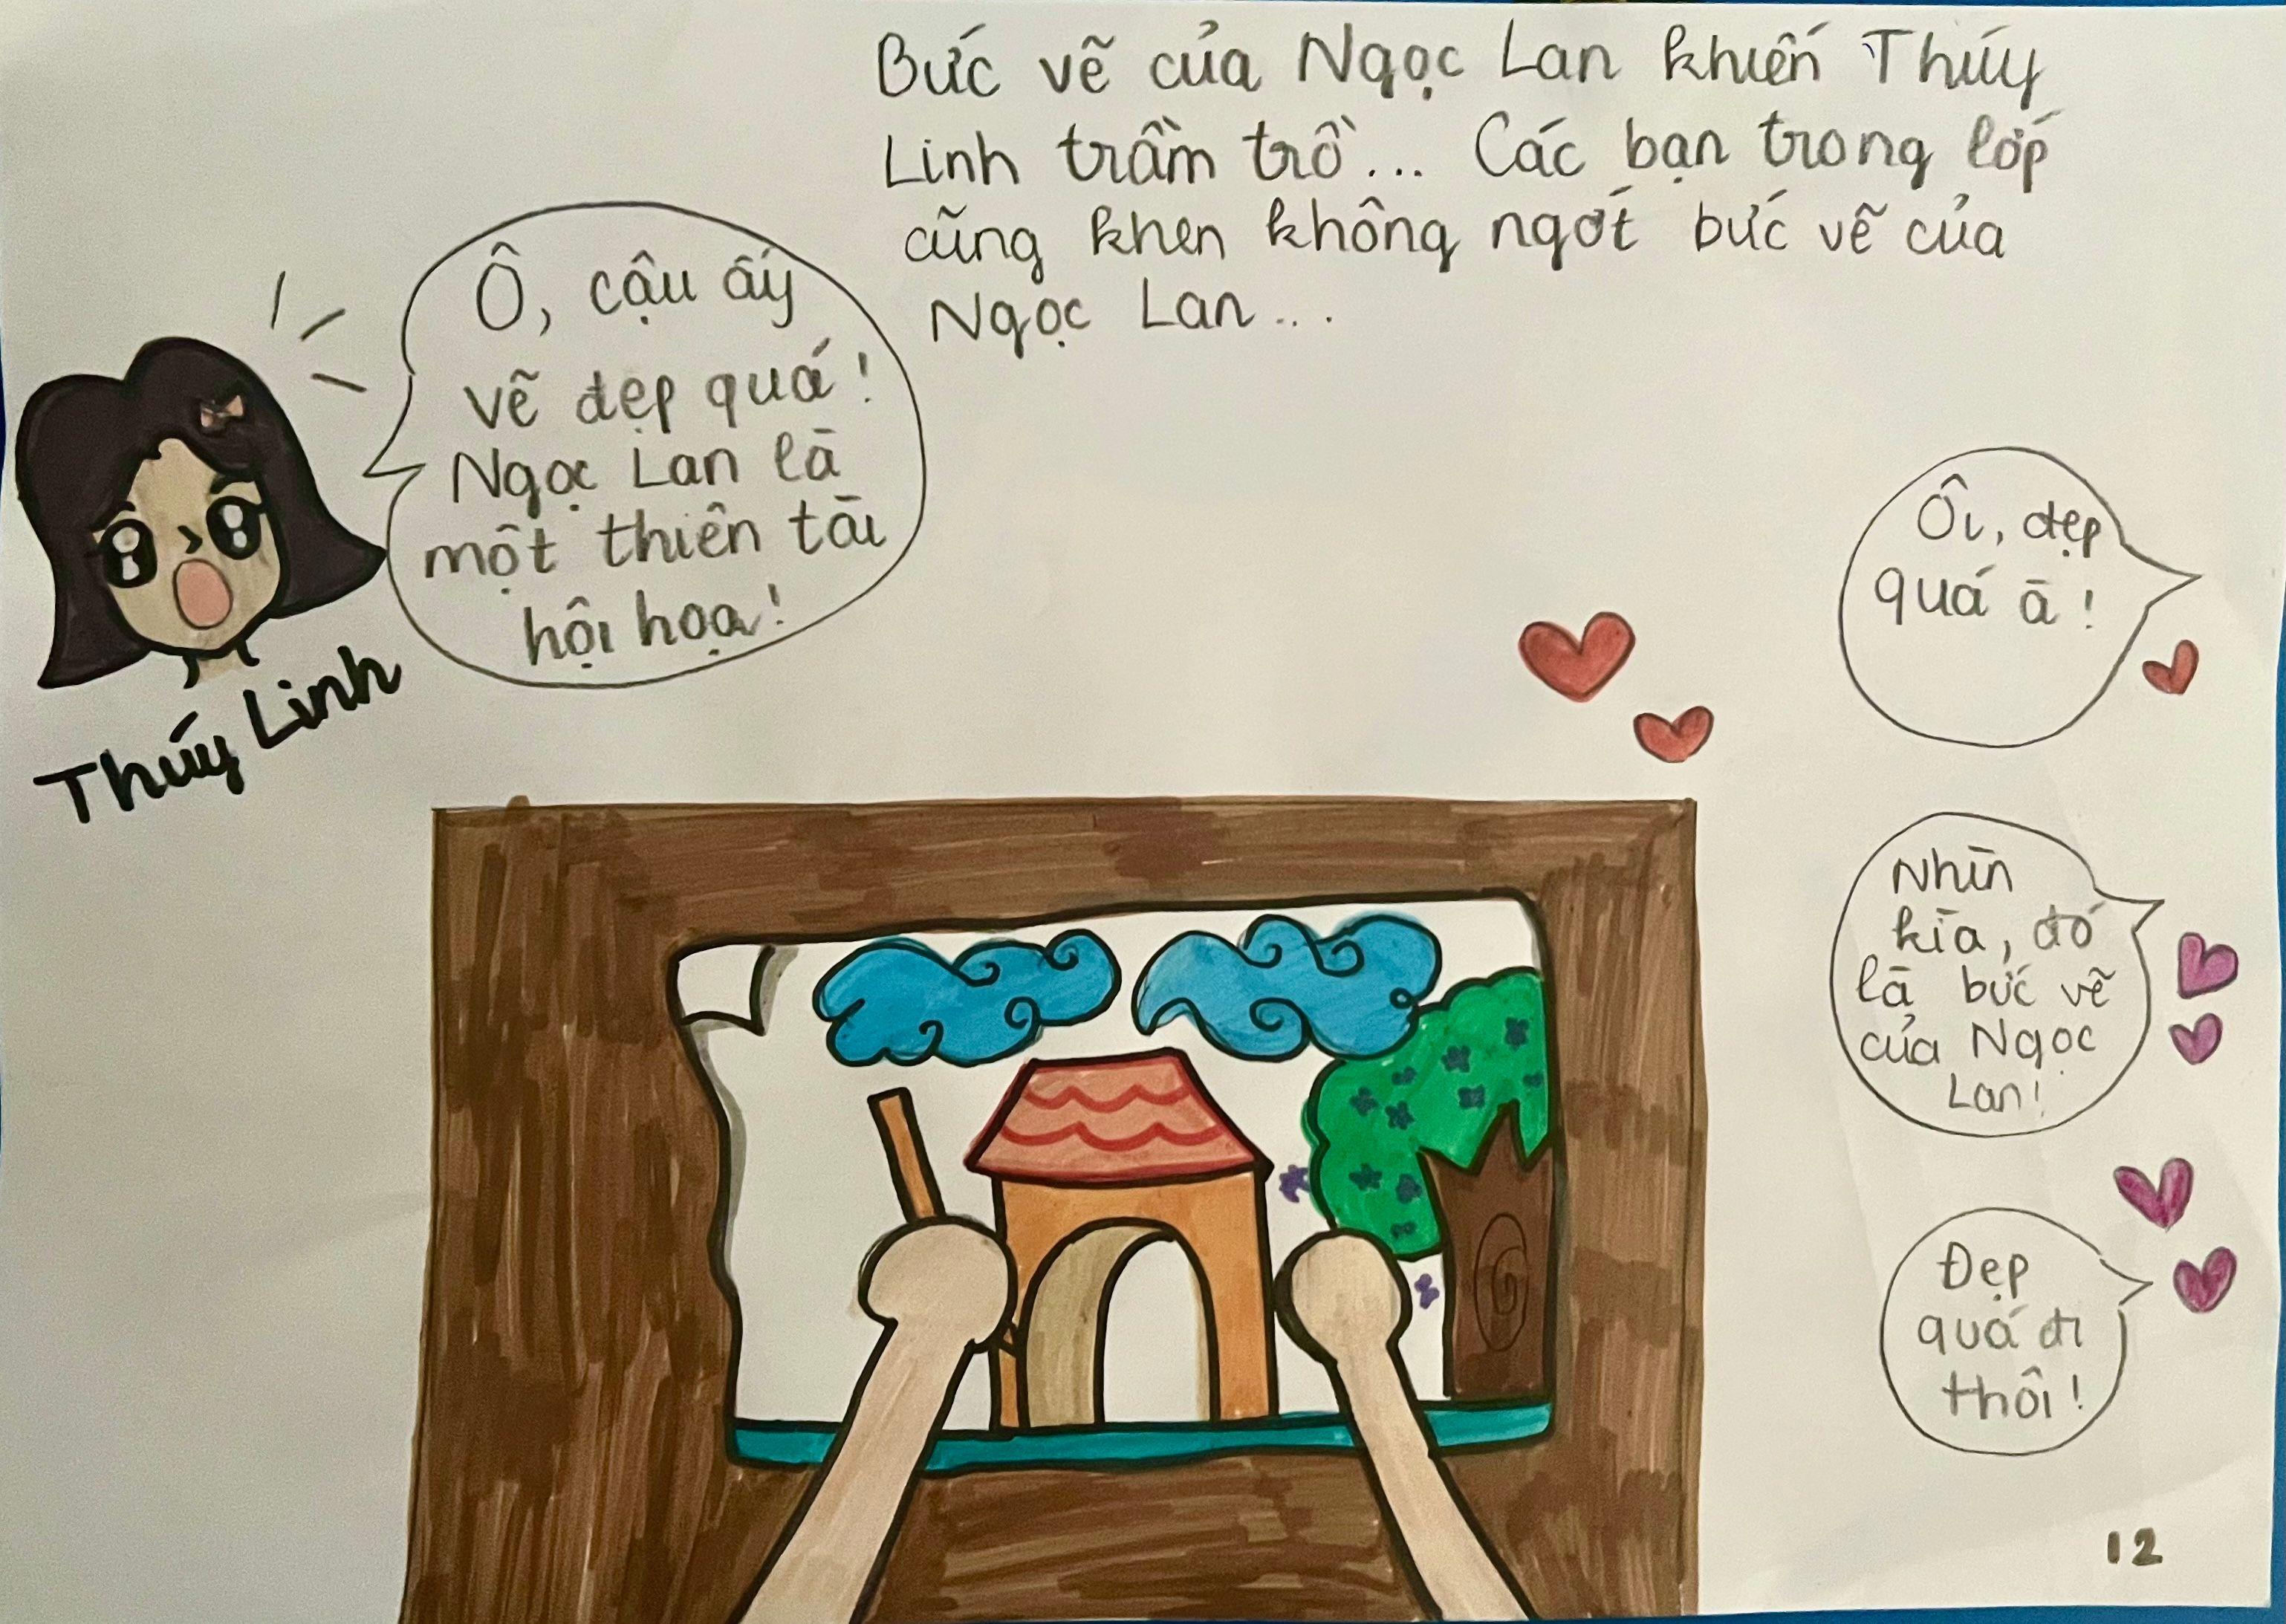 Bức vẽ của Ngọc Lan khiến Thúy
Linh trầm trồ... Các bạn trong lớp
cũng khen không ngớt bức vẽ của
Ngọc Lan...
Ô, cậu ấy
vẽ đẹp quá!
Ngọc Lan là
một thiên tài
hội họa!
Thúy Linh
Ôi, đẹp
quá à!
Nhìn
kìa, đó
là bức vẽ
của Ngọc
Lan!
Đẹp
quá đi
thôi!
12